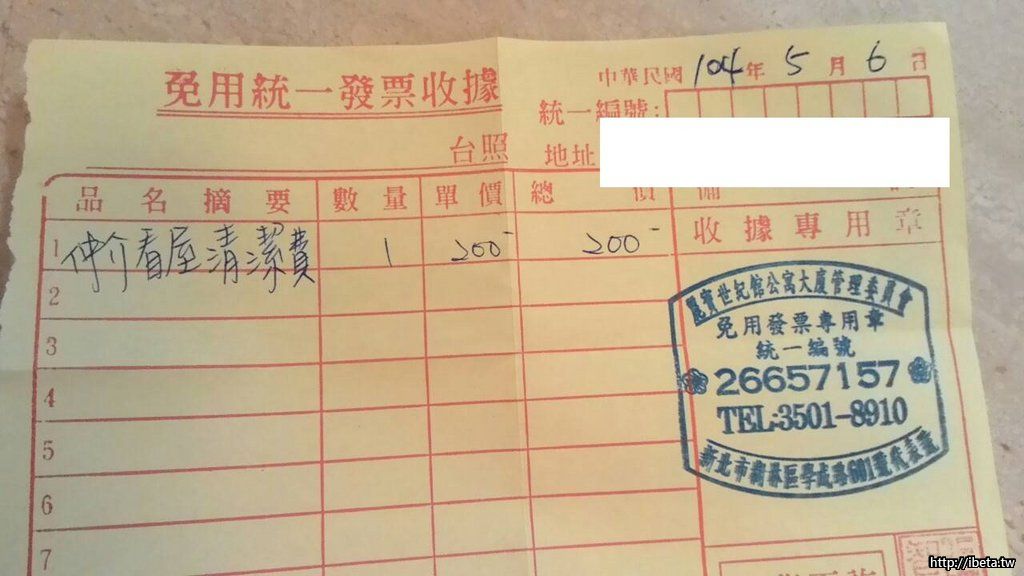 免用統一發票收據
中華民國 104年 5 月 6 日
統一編號:
台照 地址
品名摘要 數量 單價 總價 備
收據專用章
1 仲介看屋清潔費 1 200- 200-
2
3
4
5
6
7
麗寶世紀館公寓大廈管理委員會
免用發票專用章
統一編號
26657157
TEL:3501-8910
新北市樹林區學成路601號
http://ibeta.tw